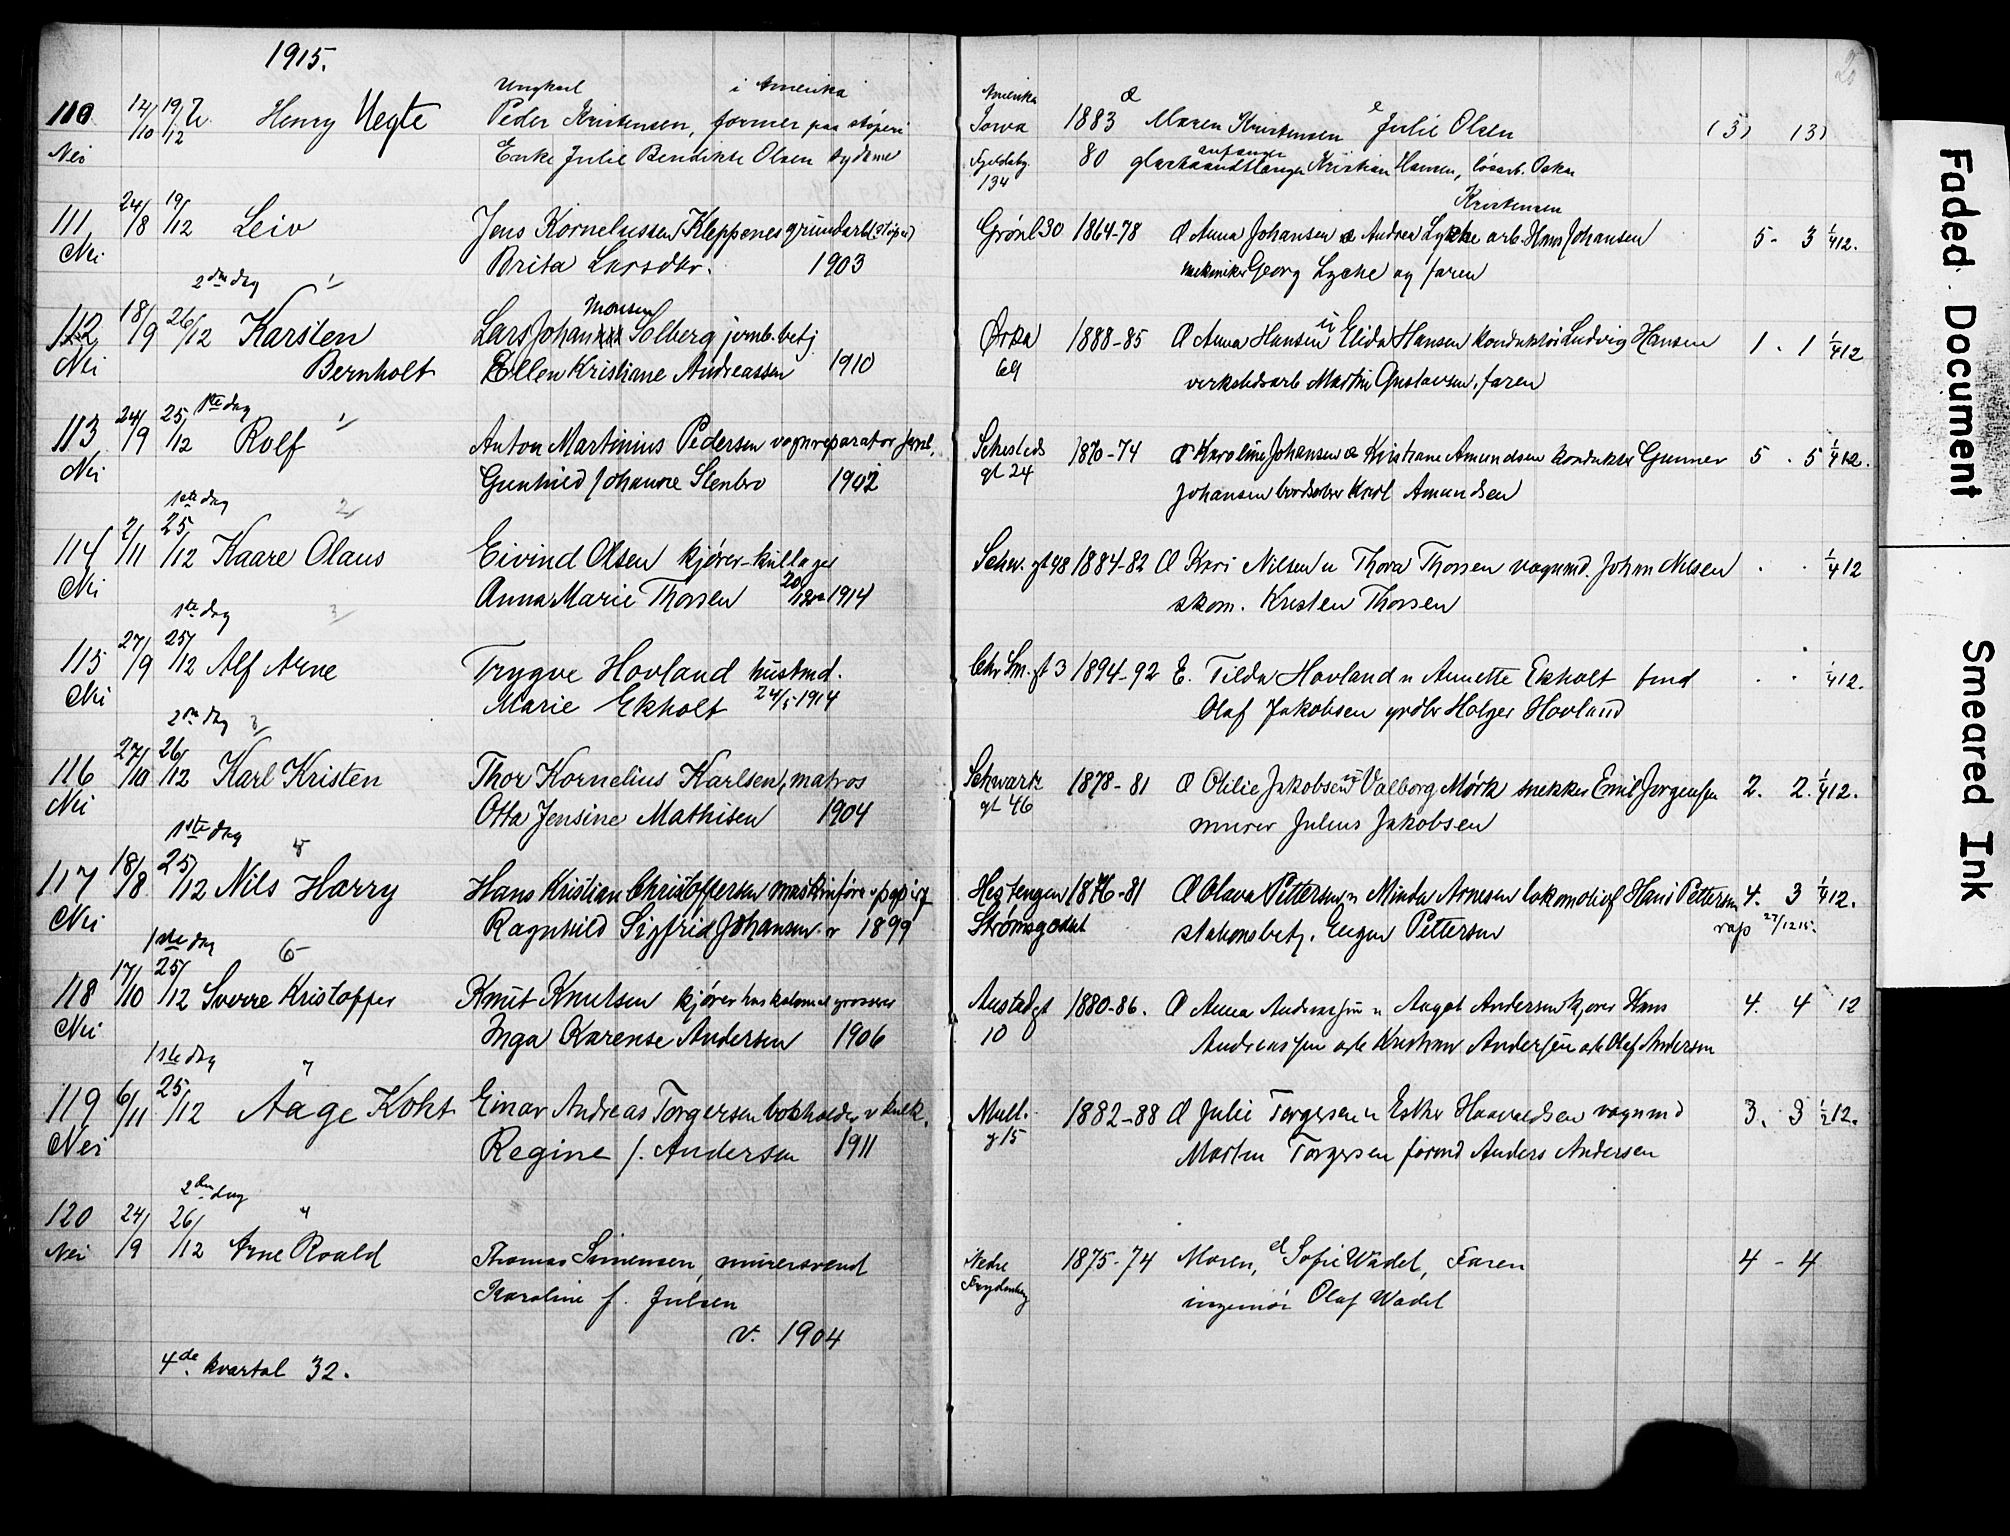 1915.
110 14/10 19/12 U. Henry Uegte Ungkarl Peder Kristensen, former paa støperi i Amerika
Nei Enke Julie Bendikte Olsen syekone
111 24/8 19/12 Leiv Jens Kornelussen Kleppenes grundarb (støper)
Nei Brita Larsdtr. 1903
2den dag 1
112 18/9 26/12 Karsten Lars Johan Monsen Solberg jernb.betj
Nei Bernholt Ellen Kristiane Andreassen 1910
1ste dag 1
113 24/9 25/12 Rolf Anton Martinius Pedersen vognreparatør jernb.
Nei Gunhild Johanne Stenbro 1902
1ste dag 2
114 2/11 25/12 Kaare Olaus Eivind Olsen kjører-kullager
Nei Anna Marie Thorsen 20/12 1914
1ste dag 3
115 27/9 25/12 Alf Arne Trygve Hovland hustmd.
Nei Marie Ekholt 24/5 1914
2den dag 3
116 27/10 26/12 Karl Kristen Thor Kornelius Karlsen, matros
Nei Otta Jensine Mathisen 1904
1ste dag 5
117 18/8 25/12 Nils Harry Hans Kristian Christoffersen maskinfører v papirf
Nei Ragnhild Sigfrid Johansen v 1899
1ste dag 6
118 17/10 25/12 Sverre Kristoffer Knut Knutsen kjører hos kolonial grosserer
Nei Inga Karense Andersen 1906
1ste dag 7
119 6/11 25/12 Aage Koht Einar Andreas Torgersen bokholder v kulk.
Nei Regine f. Andersen 1911
2den dag 4
120 24/9 26/12 Arne Roald Thomas Simensen, murersvend
Nei Karoline f. Julsen
v. 1904
4de kvartal 32.
Amerika Iowa 1883 Æ Maren Kristensen e Julie Olsen (3) (3)
Fjeldsby. 134 80 glashaandtlanger Kristian Hansen, løsarb. Oskar
Kristensen
Grønl 30 1864-78 Æ Anna Johansen æ Andrea Lyche arb. Hans Johansen 5 - 3 1/4 12.
mekaniker Georg Lyche og faren
Ørka 1888-85 Æ Anna Hansen u Elida Hansen konduktør Ludvig Hansen 1 . 1 1/4 12
69 verkstedsarb Martin Gustavsen, faren
Schesteds gt 24 1870-74 Æ Karoline Johansen æ Kristiane Amundsen konduktør Gunner 5 . 5 1/4 12.
Johansen bordskriver Karl Amundsen
Schw. gt 48 1884-82 Æ Kari Nilsen u Thora Thorsen vognmd. Johan Nilsen . . 1/4 12
skom. Kristen Thorsen
Chr Sm. gt 3 1894-92 E. Tilda Hovland u Annette Ekholt fmd . . 1/4 12.
Olaf Jakobsen grdbr Holger Hovland
Schwartz gt 46 1878-81 Æ Otilie Jakobsen u Valborg Mørk snekker Emil Jørgensen 2. 2. 1/4 12.
murer Julius Jakobsen
Hestengen 1876-81 Æ Olava Pettersen u Minda Arnesen lokomotivf Hans Pettersen 4. 3 1/4 12.
Strømsgodset stationsbetj. Eugen Pettersen rap 27/12 15.
Austadgt 1880-86. Æ Anna Andreassen u Aagot Andersen kjører Hans 4. 4 12
10 Andreassen arb Kristian Andersen arb Olaf Andersen
Mull. g 15 1882-88 Æ Julie Torgersen u Esther Haavaldsen vognmd 3. 3 1/2 12.
Morten Torgersen formd Anders Andersen
Nedre Frydenberg 1875-74 Moren, el Sofie Wadel, Faren 4 - 4
ingeniør Olaf Wadel
Faded Document
Smeared Ink